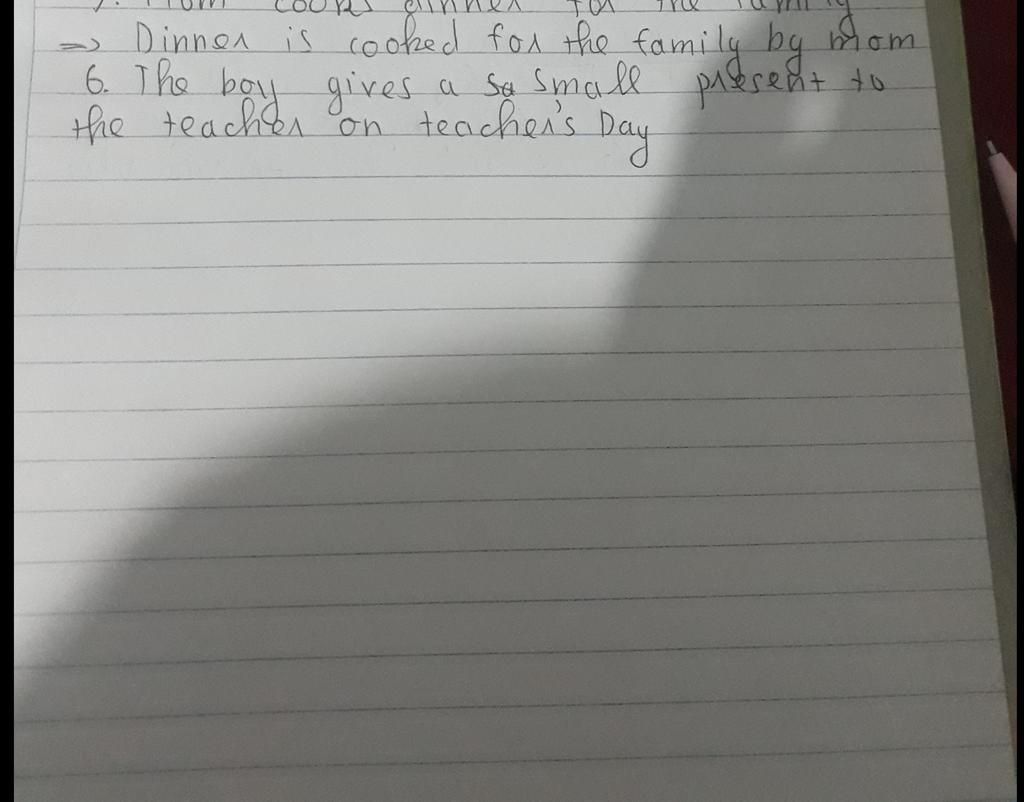 Mom cooks dinner for the family
=> Dinner is cooked for the family by mom
6. The boy gives a sa small present to
the teacher on teacher's Day